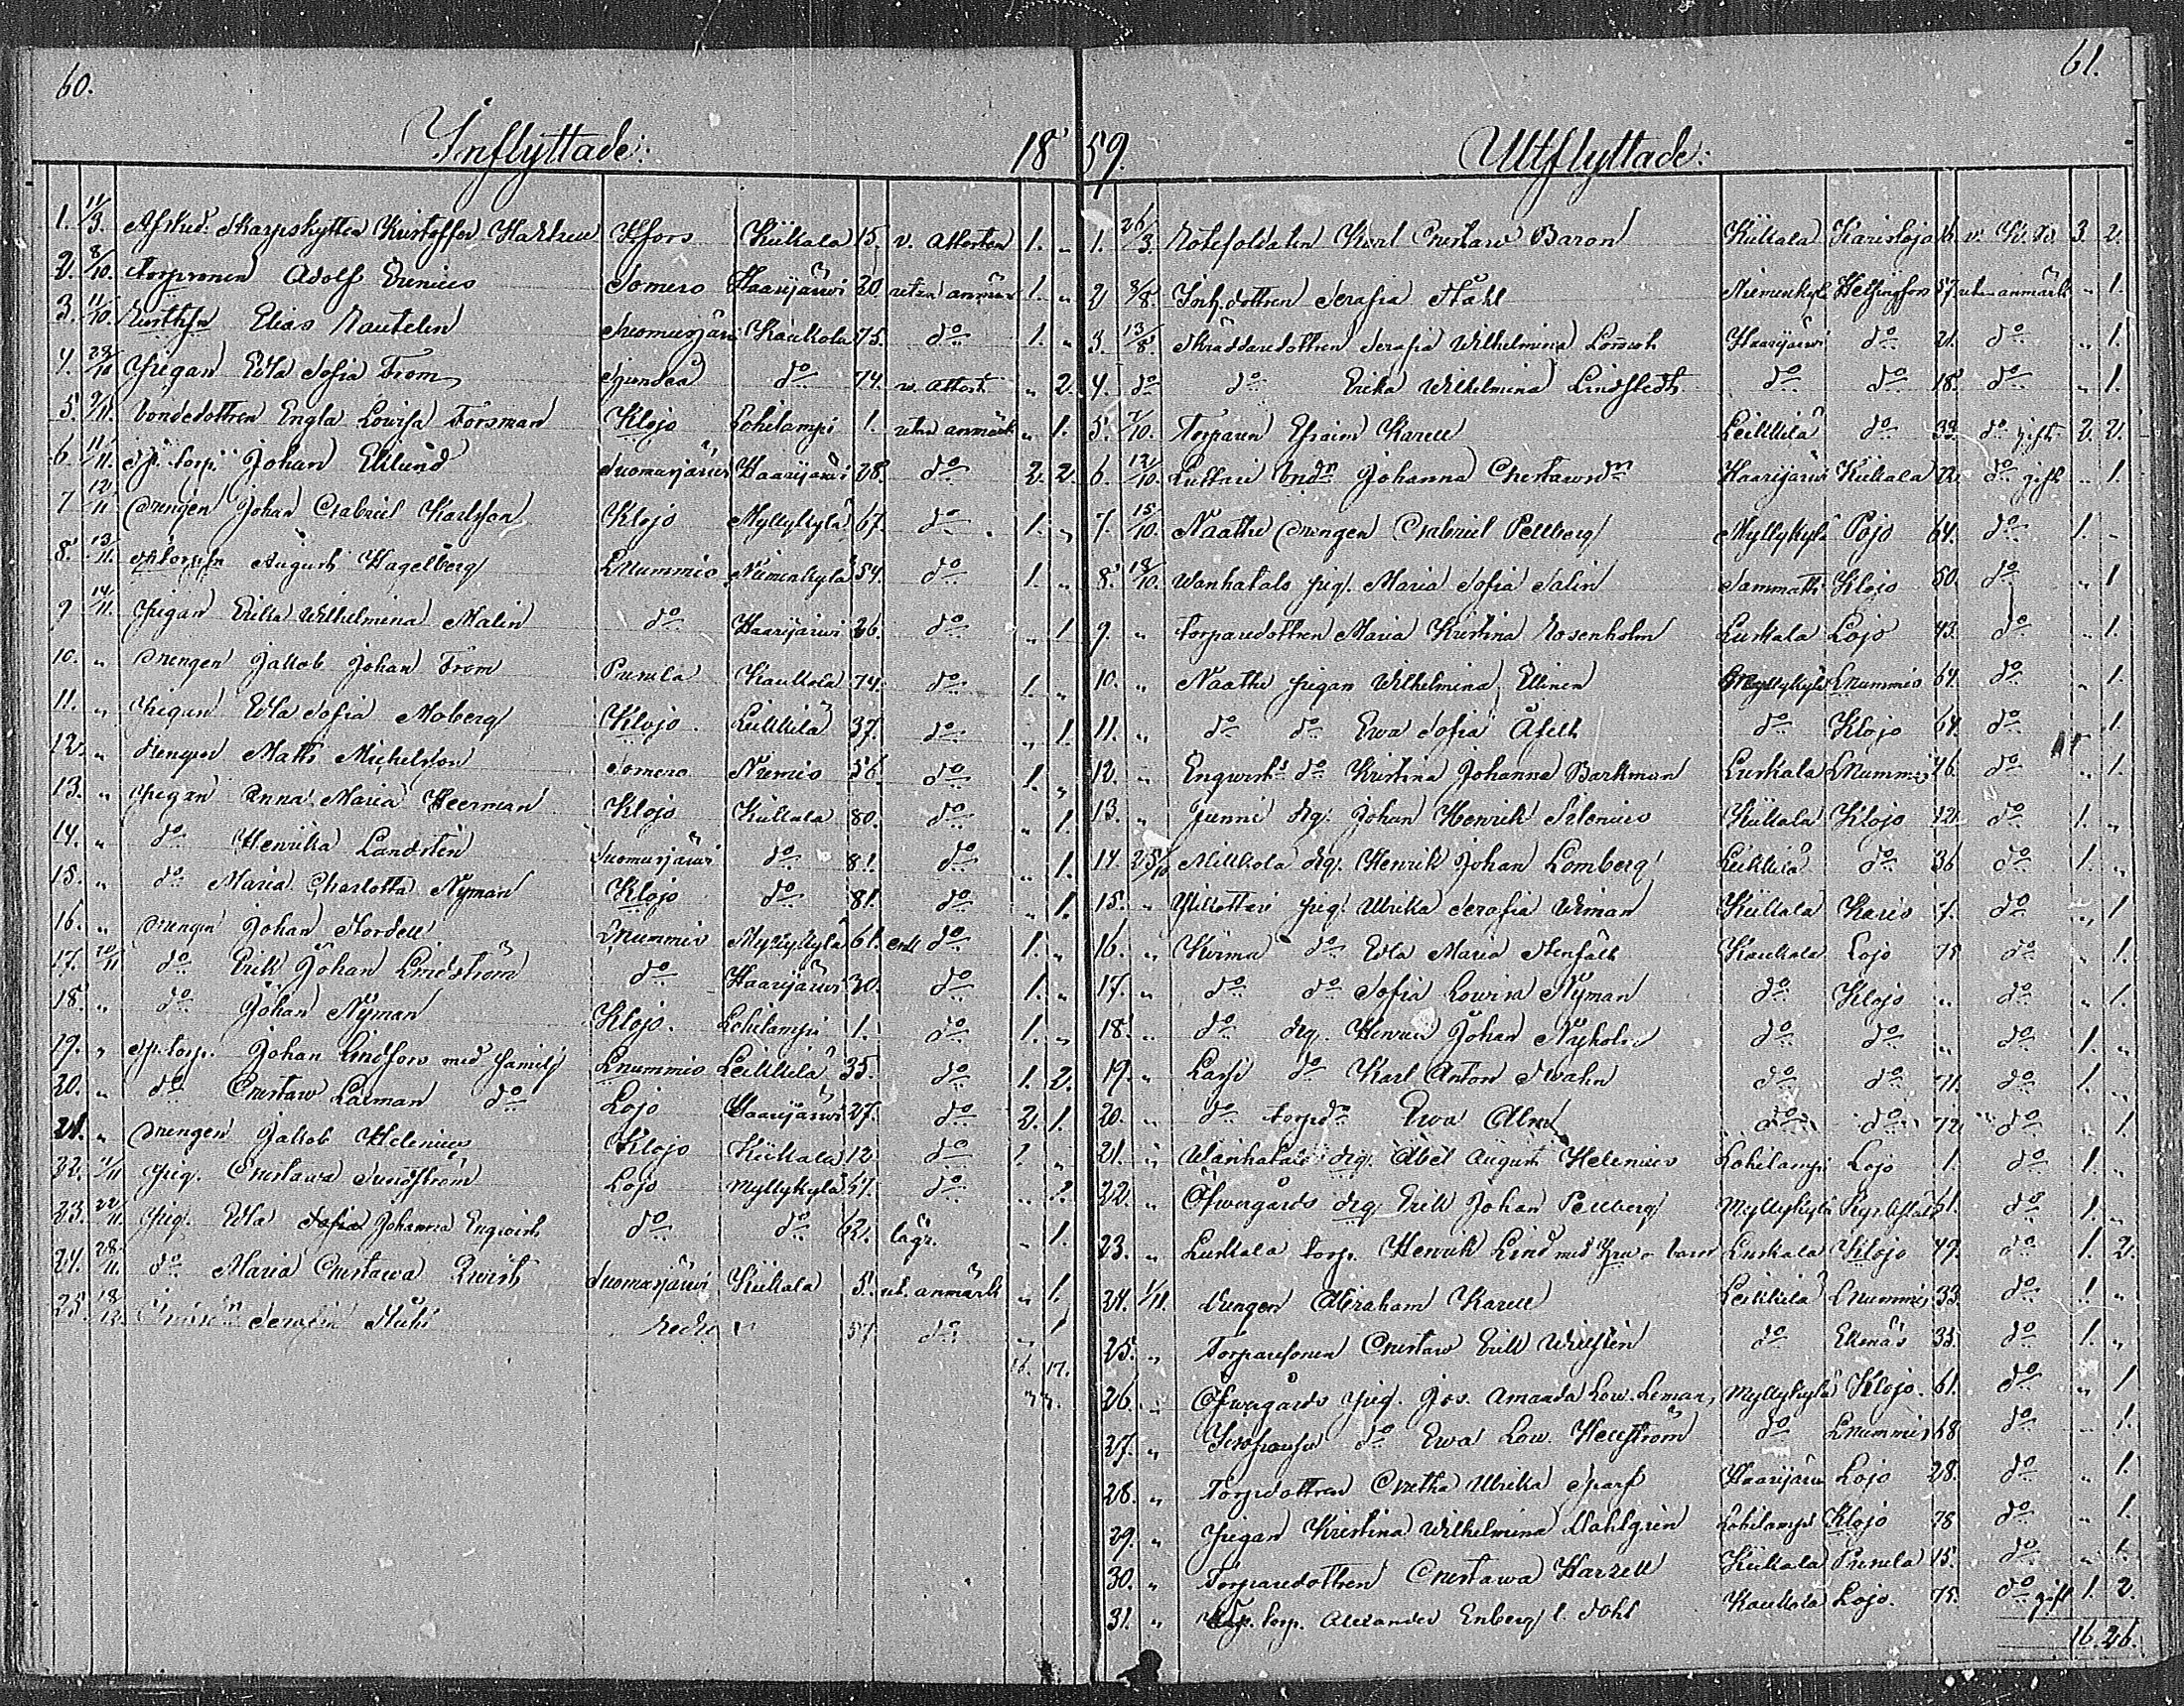 60.
Inflyttade: 18
1. 11/3. Afsked. Skarpskytten Kristoffer Hfors Kiikala 15. v. Attesten 1. "
2. 8/10. Torpsonen Adolf Somero Haarijärwi 20 utan anmärk 1. "
3. 11/10. Elias Rautelin Suomusjärwi Kaukola 75. do 1. "
4. Pigan Edla Sofia From Sjundeå do 74. v. Attest " 2.
5. 9/11. bondedottren Engla Lowisa Forsman Klojo Lohilampi 1. utan anmärk " 1.
6. 11/11. sp. torp. Johan Eklund Suomusjärwi Haarijärwi 28. do 2. 2.
7 12/11 Drengen Johan Gabriel Karlsson Klojo Myllykylä 67. do 1. "
8. 13/11. August Hagelberg Lnummis Niemenkylä 54. do 1. "
9 14/11. Pigan Erika Wilhelmina Malin do Haarijärwi 26. do " 1
10. " Drengen Jakob Johan From Pusula Kaukola 74. do 1. "
11. " Pigan Edla Sofia Moberg Klojo Leikkilä 37. do " 1.
12. " drengen Matts Michelsson Somero Nummis 56. do 1. "
13. " Pigan Anna Maria Heerman Klojo Kiikala 80. do " 1.
14. " do Henrika Landsten Suomusjärwi do 81. do " 1.
15. " do Maria Charlotta Nyman Klojo do 81. do " 1.
16. " Drengen Johan Nordell Lnummis Myllykylä 61. enl do 1. "
17. 20/11 do Erik Johan Lindström do Haarijärwi 30. do 1. "
18. " do Johan Nyman Klojo. Lohilampi 1. do 1. "
19. " sp. torp. Johan Lindfors med familj Lnummis Leikkilä 35. do 1. 2.
20. " do Gustaw Laiman do Lojo Haarijärwi 27. do 2. 1.
21. " Drengen Jakob Helenius Klojo Kiikala 12. do 1. "
22. Pig. Gustawa Sundström Lojo Myllykylä 57. do
23. 22/11. Pig. Edla Johanna Engwist do do 62. lägr. " 1.
24. 28/11. do Maria Gustawa Qwist Suomusjärwi Kiikala 5. ut. anmärk " 1.
25. 57. do " 1
16. 17.
33.
61.
59. Utflyttade:
1. 26/3. Rotesoldaten Karl Gustaw Baron Kiikala Karislojo 3. 2.
2 Serafia Ståhl Niemenkylä Helsingfors 57. utan anmärk " 1.
3. 13/8. Skräddaredottren Serafia Wilhelmina Haarijärwi do 21. do " 1.
4. do do Erika Wilhelmina Lindstedt do do 18. do " 1.
5. 7/10. Torparen Efraim Karell Leikkilä do 33. do gift 2. 2.
6 12/10. Johanna Gustawsdn Haarijärwi Kiikala 22. do gift " 1.
7. 15/10. Naathi Drengen Gabriel Pellberg Myllykylä Pojo 64. do 1. "
8. 18/10. Wanhatalo pig. Maria Sofia Salin Sammatti Klojo 50. do " 1
9. " torparedottren Maria Kristina Rosenholm Luskala Lojo 43. do " 1.
10. " Naathi pigan Wilhelmina Ellinen Myllykylä Lnummis 64. do " 1
11. " do do Ewa Sofia Åfelt do Klojo 64. do " 1
12. " Engwists do Kristina Johanna Barkman Luskala Lnummis 46. do " 1.
13. " Junni dig. Johan Henrik Silenius Kiikala Klojo 12. do 1. "
14. 25/10 Mikkola dig. Henrik Johan Lomberg Leikkilä do 36 do 1. "
15. " pig. Ulrika Serafia Wiman Kiikala Karis 7. do " 1
16. " Kirma do Edla Maria Stenfält Kaukola Lojo 75 do " 1.
17. " do do Sofia Lowisa Nyman do Klojo " do " 1.
18. " do dig. Henrik Johan Nyholm do do " do 1. "
19. " Lassi do Karl Anton Swahn do do 71. do 1. "
20. " do torpdr Ewa Alm do do 72. do " 1.
21. " Wanhatalo dig. Abel August Helenius Lohilampi Lojo 1. do 1. "
22. " Öfwergårds dig. Erik Johan Pellberg Myllykylä Kyrkslätt 61. do 1. "
23. " Luskala torp. Henrik Lind med hru o barn Luskala Klojo 49. do 1. 2.
24. 1/11. Drengen Abraham Karell Leikkilä Lnummis 33. do 1. "
25. " Torparesonen Gustaw Erik do Ekenäs 35. do 1. "
26. " Öfwergårds pig. Jos. Amanda Low. Leman Myllykylä Klojo. 61. do " 1
27. " do Ewa Low. Hellström do Lnummis 68 do " 1.
28. " Torpdottren Gretha Ulrika Sparf Haarijärwi Lojo 28. do " 1.
29. " Pigan Kristina Wilhelmina Dahlgrén Lohilampi Klojo 78 do " 1.
30. " Torparedottren Gustawa Harzell Kiikala Pusula 15. do " 1.
31. " torp. Alexander Enberg l. Dohl Kaukola Lojo. 75. do gift 1. 2
16. 26.